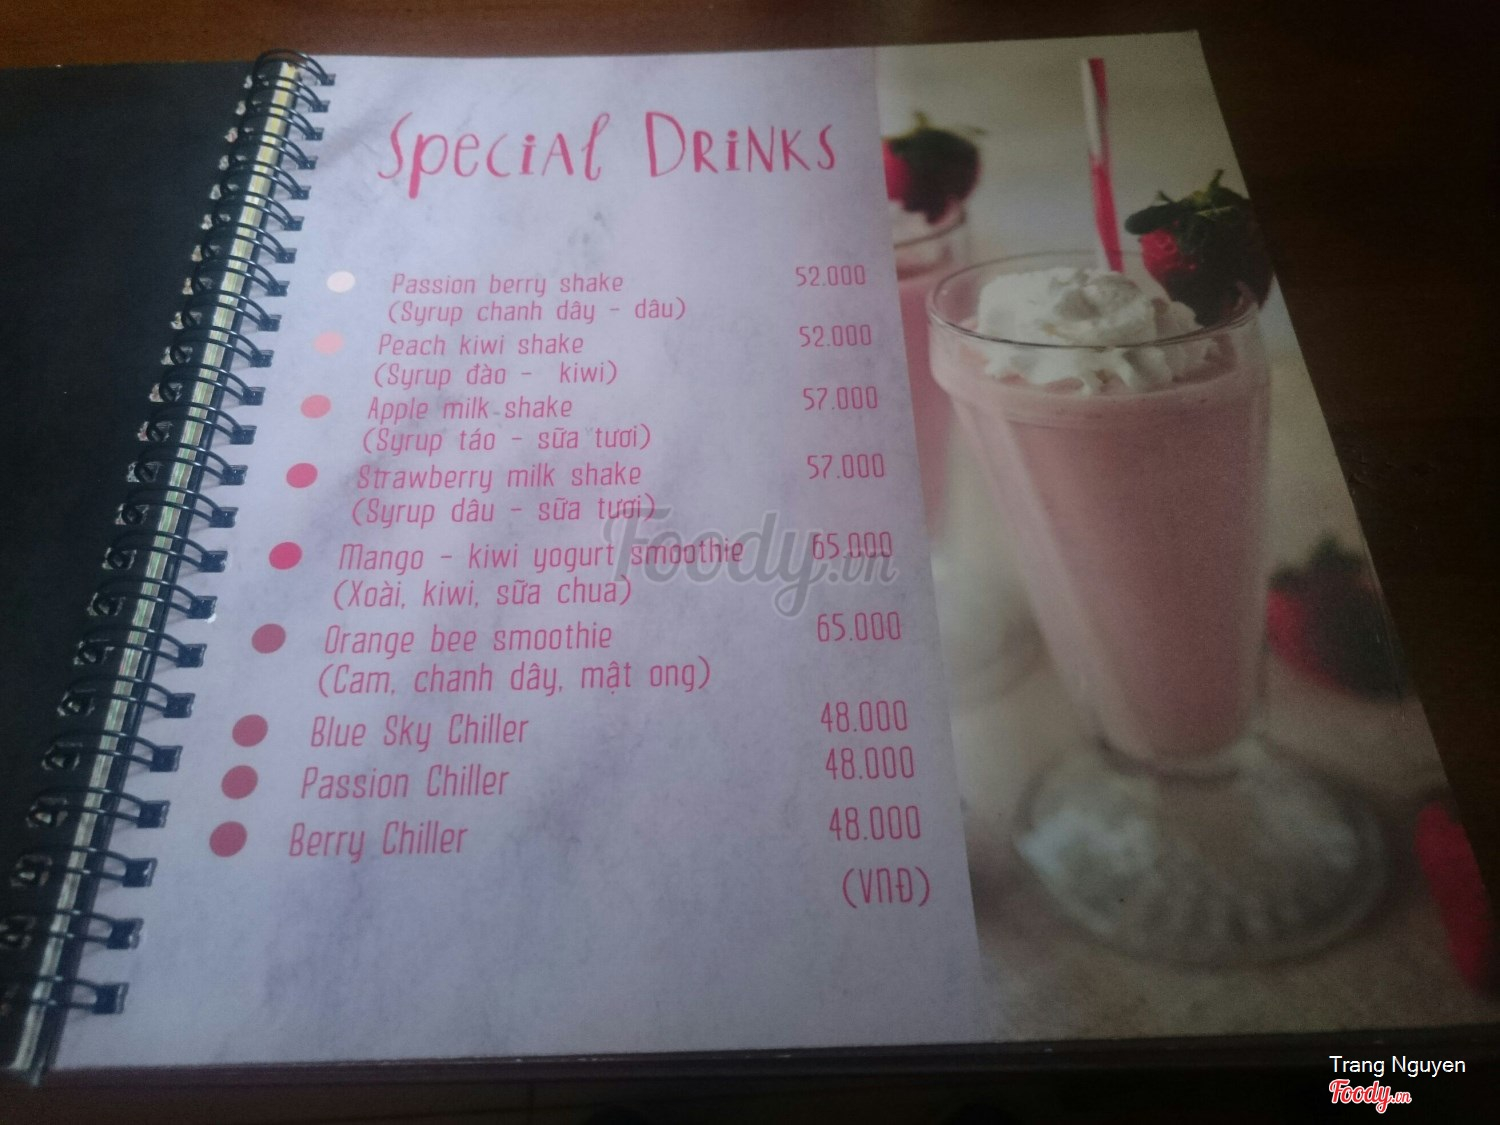 Special Drinks
Passion berry shake 52.000
(Syrup chanh dây - dâu)
Peach kiwi shake 52.000
(Syrup đào - kiwi)
Apple milk shake 57.000
(Syrup táo - sữa tươi)
Strawberry milk shake 57.000
(Syrup dâu - sữa tươi)
Mango - kiwi yogurt smoothie 65.000
(Xoài, kiwi, sữa chua)
Orange bee smoothie 65.000
(Cam, chanh dây, mật ong)
Blue Sky Chiller 48.000
Passion Chiller 48.000
Berry Chiller 48.000
(VNĐ)
Foody.vn
Trang Nguyen
Foody.vn